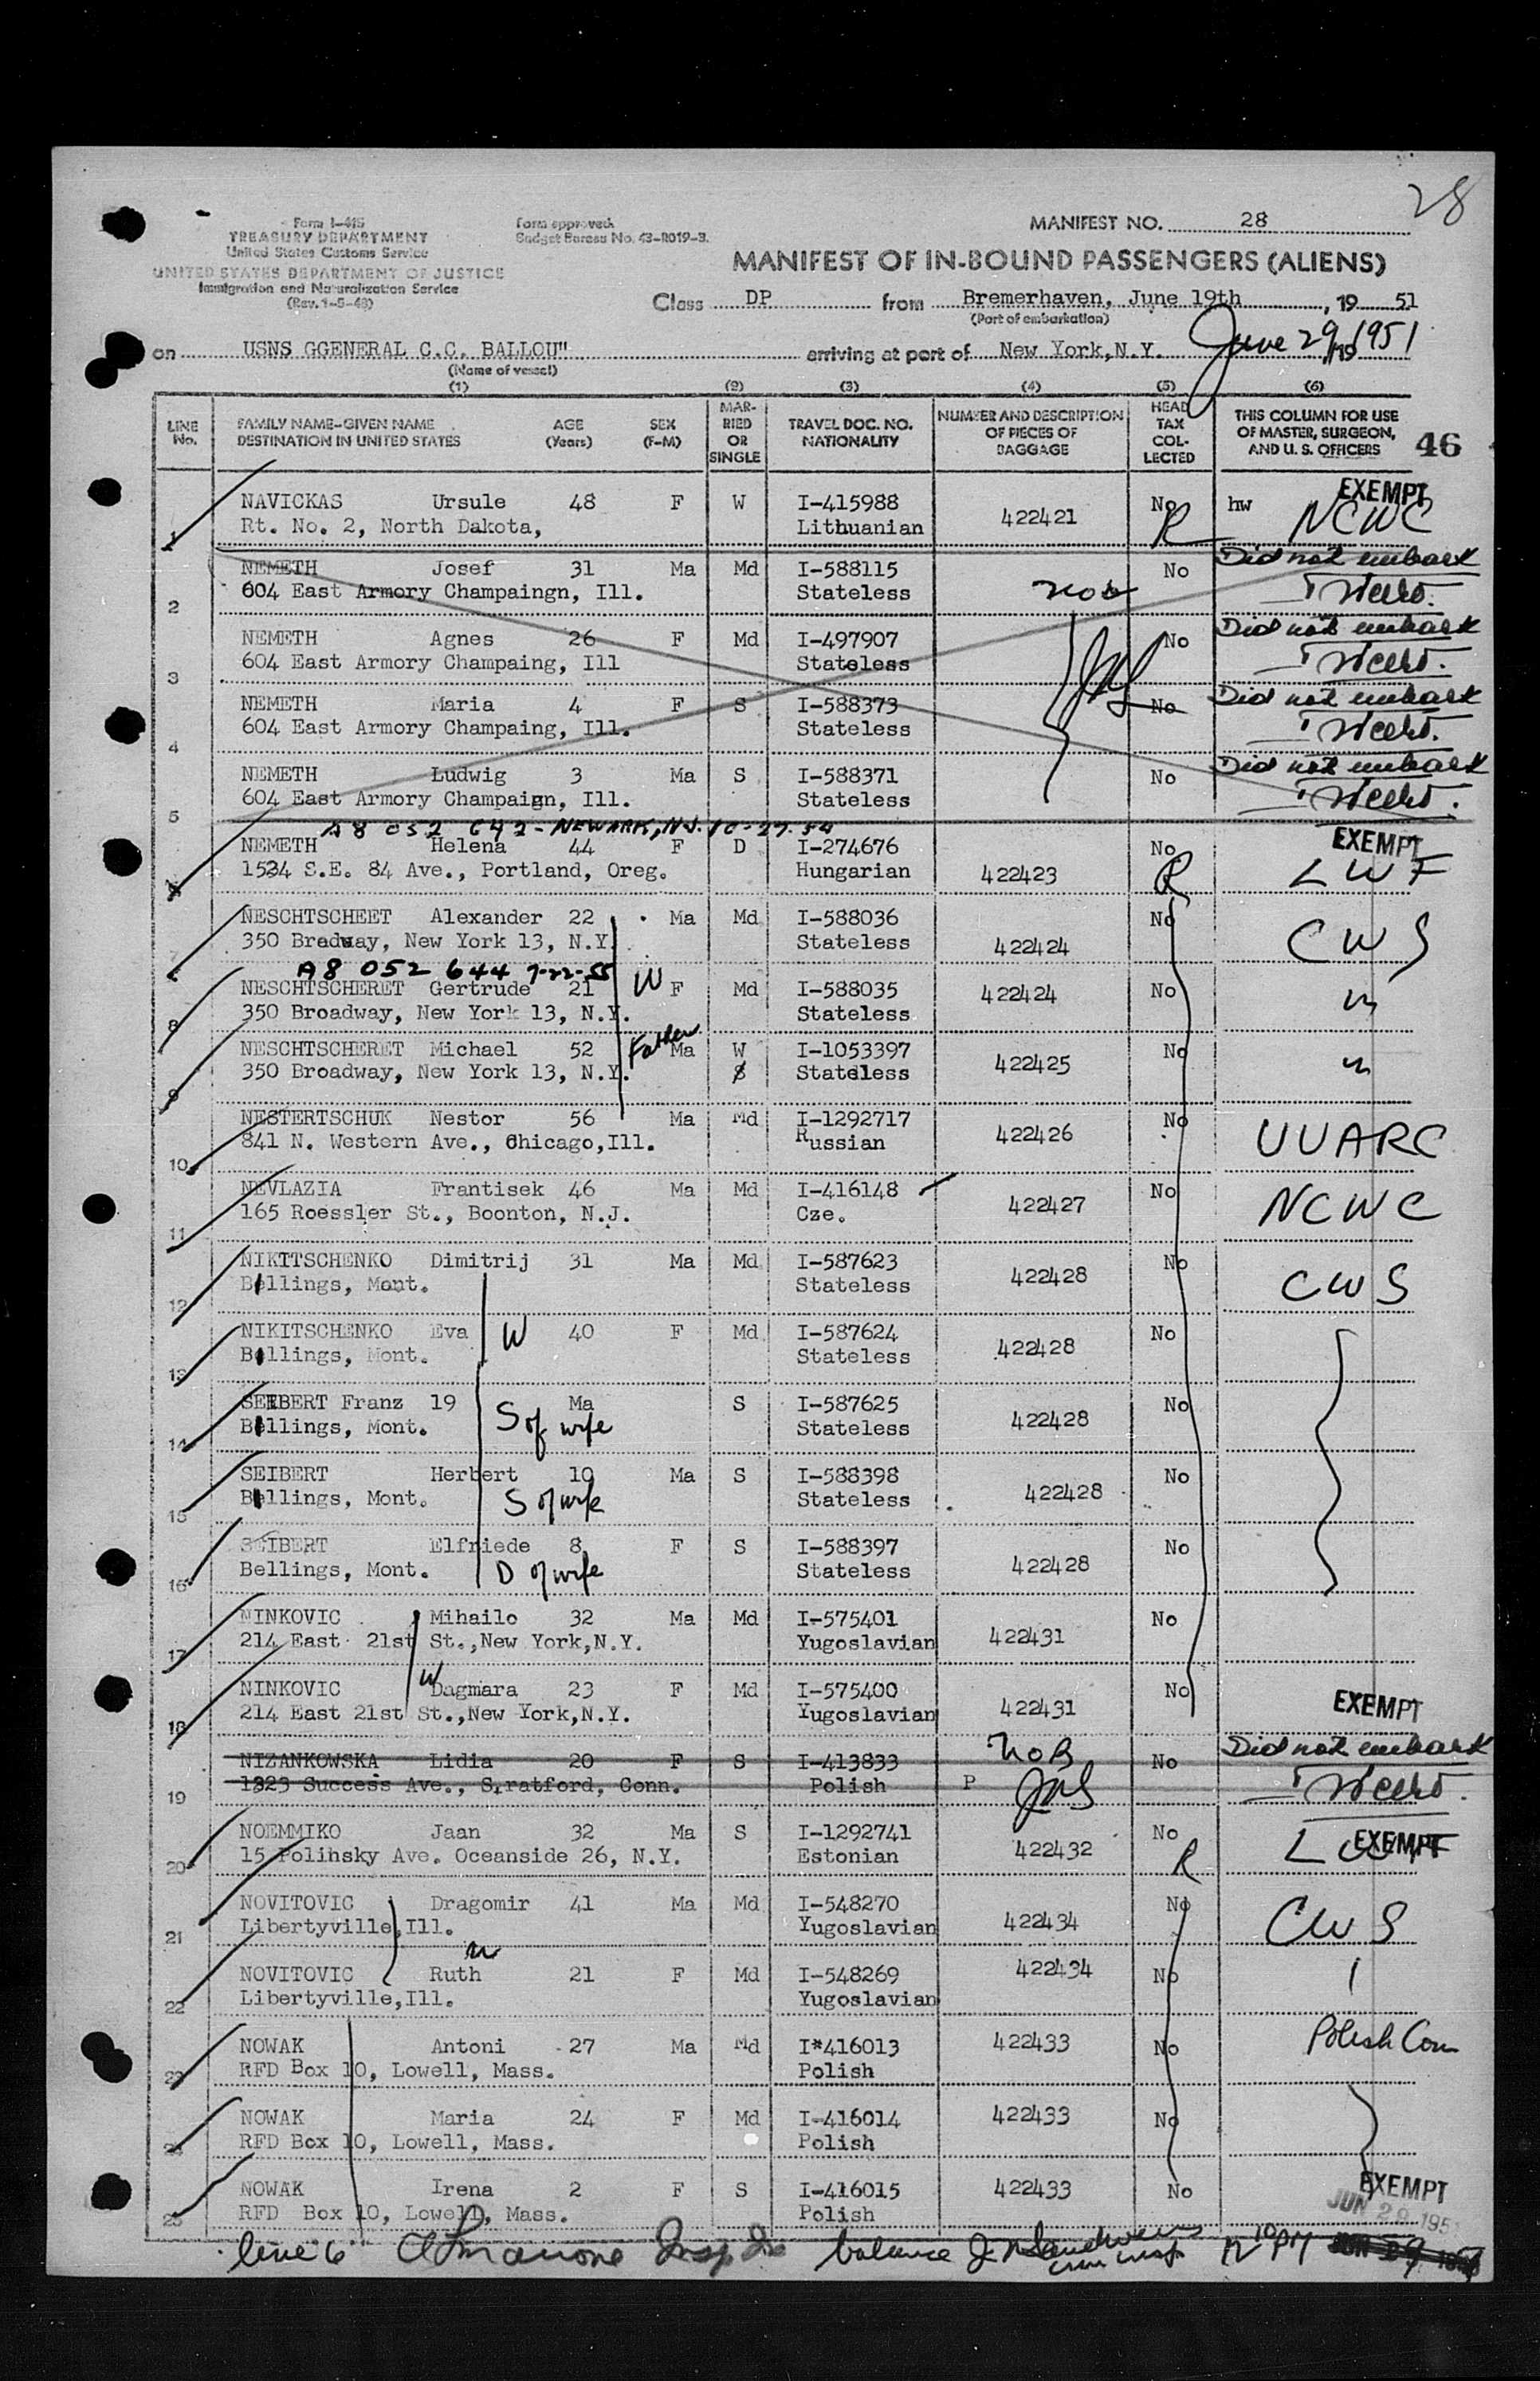 28
Form I-415
TREASURY DEPARTMENT
United States Customs Service
UNITED STATES DEPARTMENT OF JUSTICE
Immigration and Naturalization Service
(Rev. 1-5-48)
Form approved.
Budget Bureau No. 43-R019-3.
MANIFEST NO. 28
MANIFEST OF IN-BOUND PASSENGERS (ALIENS)
Class DP from Bremerhaven, June 19th, 19 51
(Port of embarkation)
on USNS GGENERAL C.C. BALLOU" arriving at port of New York,N.Y. June 29, 19 1951
(Name of vessel)
(1) (2) (3) (4) (5) (6)
LINE No. FAMILY NAME-GIVEN NAME DESTINATION IN UNITED STATES AGE (Years) SEX (F-M) MARRIED OR SINGLE TRAVEL DOC. NO. NATIONALITY NUMBER AND DESCRIPTION OF PIECES OF BAGGAGE HEAD TAX COLLECTED THIS COLUMN FOR USE OF MASTER, SURGEON, AND U. S. OFFICERS 46
1 NAVICKAS Ursule 48 F W I-415988 422421 No R hw EXEMPT NCWC
Rt. No. 2, North Dakota, Lithuanian
2 NEMETH Josef 31 Ma Md I-588115 No Did not embark
604 East Armory Champaingn, Ill. Stateless
3 NEMETH Agnes 26 F Md I-497907 No Did not embark
604 East Armory Champaing, Ill Stateless
4 NEMETH Maria 4 F S I-588373 No Did not embark
604 East Armory Champaing, Ill. Stateless
5 NEMETH Ludwig 3 Ma S I-588371 No Did not embark
604 East Armory Champaign, Ill. Stateless
A8 052 642 - NEWARK, N.J. 10-27-54
6 NEMETH Helena 44 F D I-274676 422423 No R EXEMPT LWF
1534 S.E. 84 Ave., Portland, Oreg. Hungarian
7 NESCHTSCHEET Alexander 22 Ma Md I-588036 422424 No CWS
350 Bradway, New York 13, N.Y. Stateless
A8 052 644 7-22-55
8 NESCHTSCHERET Gertrude 21 W F Md I-588035 422424 No "
350 Broadway, New York 13, N.Y. Stateless
9 NESCHTSCHERET Michael 52 Father Ma W I-1053397 422425 No "
350 Broadway, New York 13, N.Y. S Statdless
10 NESTERTSCHUK Nestor 56 Ma Md I-1292717 422426 No UUARC
841 N. Western Ave., Chicago,Ill. Russian
11 NEVLAZIA Frantisek 46 Ma Md I-416148 422427 No NCWC
165 Roessler St., Boonton, N.J. Cze.
12 NIKITSCHENKO Dimitrij 31 Ma Md I-587623 422428 No CWS
Billings, Mont. Stateless
13 NIKITSCHENKO Eva W 40 F Md I-587624 422428 No
Billings, Mont. Stateless
14 SEIBERT Franz 19 Ma S I-587625 422428 No
Billings, Mont. S of wife Stateless
15 SEIBERT Herbert 10 Ma S I-588398 422428 No
Billings, Mont. S of wife Stateless
16 SEIBERT Elfriede 8 F S I-588397 422428 No
Bellings, Mont. D of wife Stateless
17 NINKOVIC Mihailo 32 Ma Md I-575401 422431 No
214 East 21st St.,New York,N.Y. Yugoslavian
18 NINKOVIC W Dagmara 23 F Md I-575400 422431 No EXEMPT
214 East 21st St.,New York,N.Y. Yugoslavian
19 NIZANKOWSKA Lidia 20 F S I-413833 NOB No Did not embark
1323 Success Ave., Stratford, Conn. Polish P
20 NOEMMIKO Jaan 32 Ma S I-1292741 422432 No R EXEMPT LWF
15 Polihsky Ave. Oceanside 26, N.Y. Estonian
21 NOVITOVIC Dragomir 41 Ma Md I-548270 422434 No CWS
Libertyville,Ill. Yugoslavian
22 NOVITOVIC W Ruth 21 F Md I-548269 422434 No
Libertyville,Ill. Yugoslavian
23 NOWAK Antoni 27 Ma Md I*416013 422433 No Polish Com
RFD Box 10, Lowell, Mass. Polish
24 NOWAK Maria 24 F Md I-416014 422433 No
RFD Box 10, Lowell, Mass. Polish
25 NOWAK Irena 2 F S I-416015 422433 No EXEMPT
RFD Box 10, Lowell, Mass. Polish
JUN 29 195
line 6 Insp balance